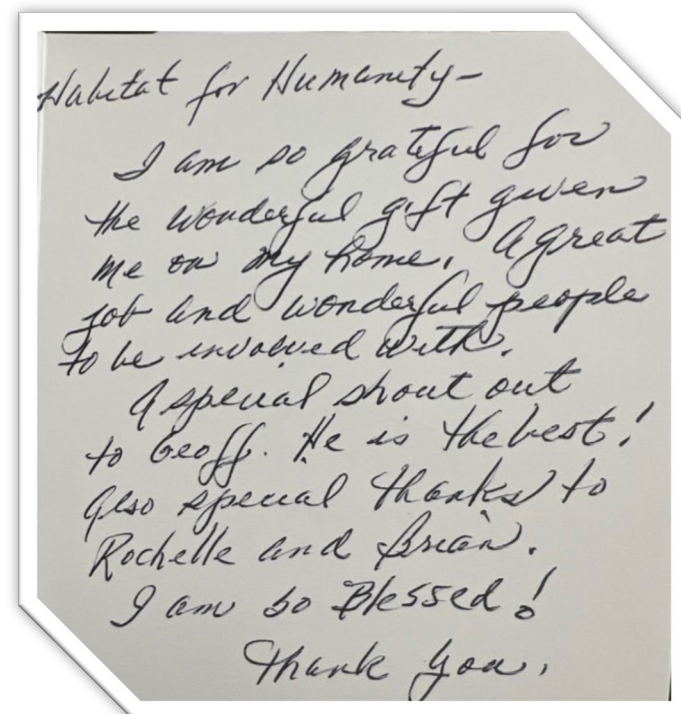 Habitat for Humanity-
I am so grateful for
the wonderful gift given
me on my home. A great
job and wonderful people
to be involved with.
A special shout out
to Geoff. He is the best!
Also special thanks to
Rochelle and Brian.
I am so Blessed!
Thank you.